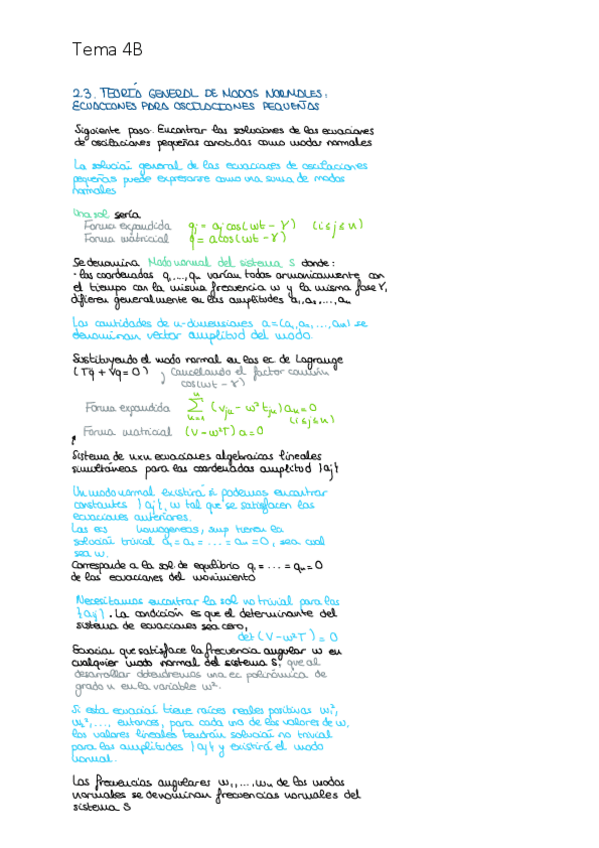 Tema 4B
2.3. TEORÍA GENERAL DE MODOS NORMALES:
ECUACIONES PARA OSCILACIONES PEQUEÑAS
Siguiente paso: Encontrar las soluciones de las ecuaciones
de oscilaciones pequeñas conocidas como modos normales
La solución general de las ecuaciones de oscilaciones
pequeñas puede expresarse como una suma de modos
normales
Una sol sería
Forma expandida qj = aj cos(wt - γ) (1≤j≤n)
Forma matricial q = a cos(wt - γ)
Se denomina Modo normal del sistema S donde:
- las coordenadas q1,...,qn varían todas armonicamente con
el tiempo con la misma frecuencia w y la misma fase γ,
difieren generalmente en las amplitudes a1,a2,...,an
Las cantidades de n-dimensiones a=(a1,a2,...,an) se
denominan vector amplitud del modo.
Sustituyendo el modo normal en las ec. de Lagrange
(Tq̈ + Vq = 0) , Cancelando el factor común
cos(wt - γ)
Forma expandida ∑ₖ₌₁ⁿ (vjk - w²tjk)ak = 0
(1≤j≤n)
Forma matricial (V - w²T) a = 0
Sistema de nxn ecuaciones algebraicas lineales
simultáneas para las coordenadas amplitud {aj}
Un modo normal existirá si podemos encontrar
constantes {aj}, w tal que se satisfacen las
ecuaciones anteriores.
Las ecs homogeneas, simp tienen la
solución trivial a1 = a2 = ... = an = 0, sea cual
sea w.
Corresponde a la sol. de equilibrio q1 = ... = qn = 0
de las ecuaciones del movimiento
Necesitamos encontrar la sol no trivial para las
{aj}. La condición es que el determinante del
sistema de ecuaciones sea cero,
det (V - w²T) = 0
Ecuación que satisface la frecuencia angular w en
cualquier modo normal del sistema S, que al
desarrollar obtendremos una ec polinómica de
grado n en la variable w².
Si esta ecuación tiene raíces reales positivas w1²,
w2²,..., entonces, para cada uno de los valores de w,
los valores lineales tendrán solución no trivial
para las amplitudes {aj} y existirá el modo
normal.
Las frecuencias angulares w1,...,wn de los modos
normales se denominan frecuencias normales del
sistema S